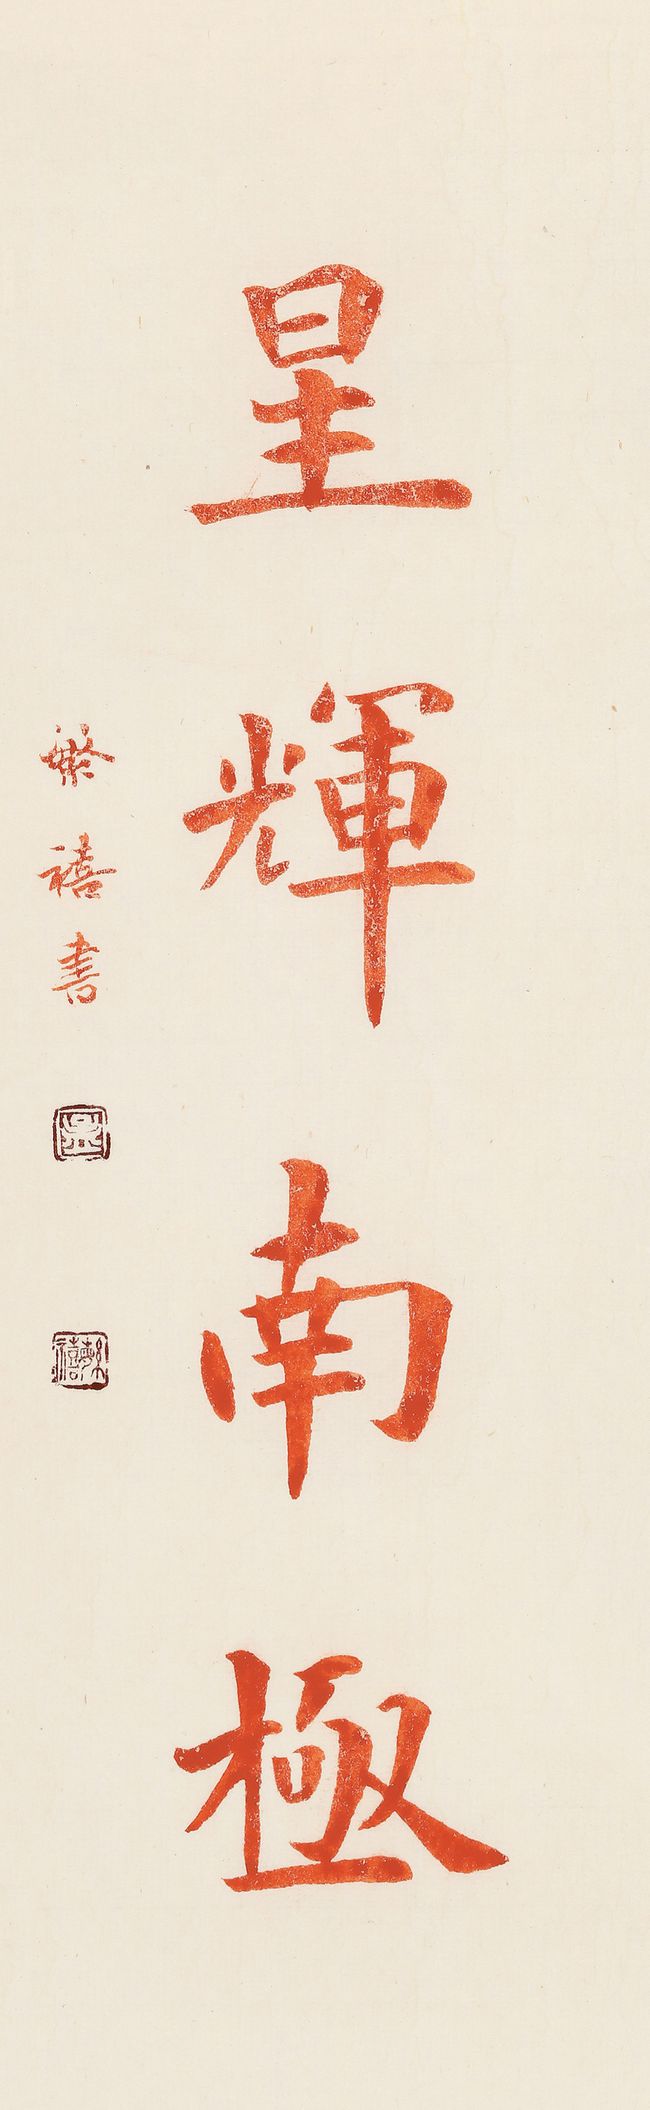 星輝南極
繁禧書